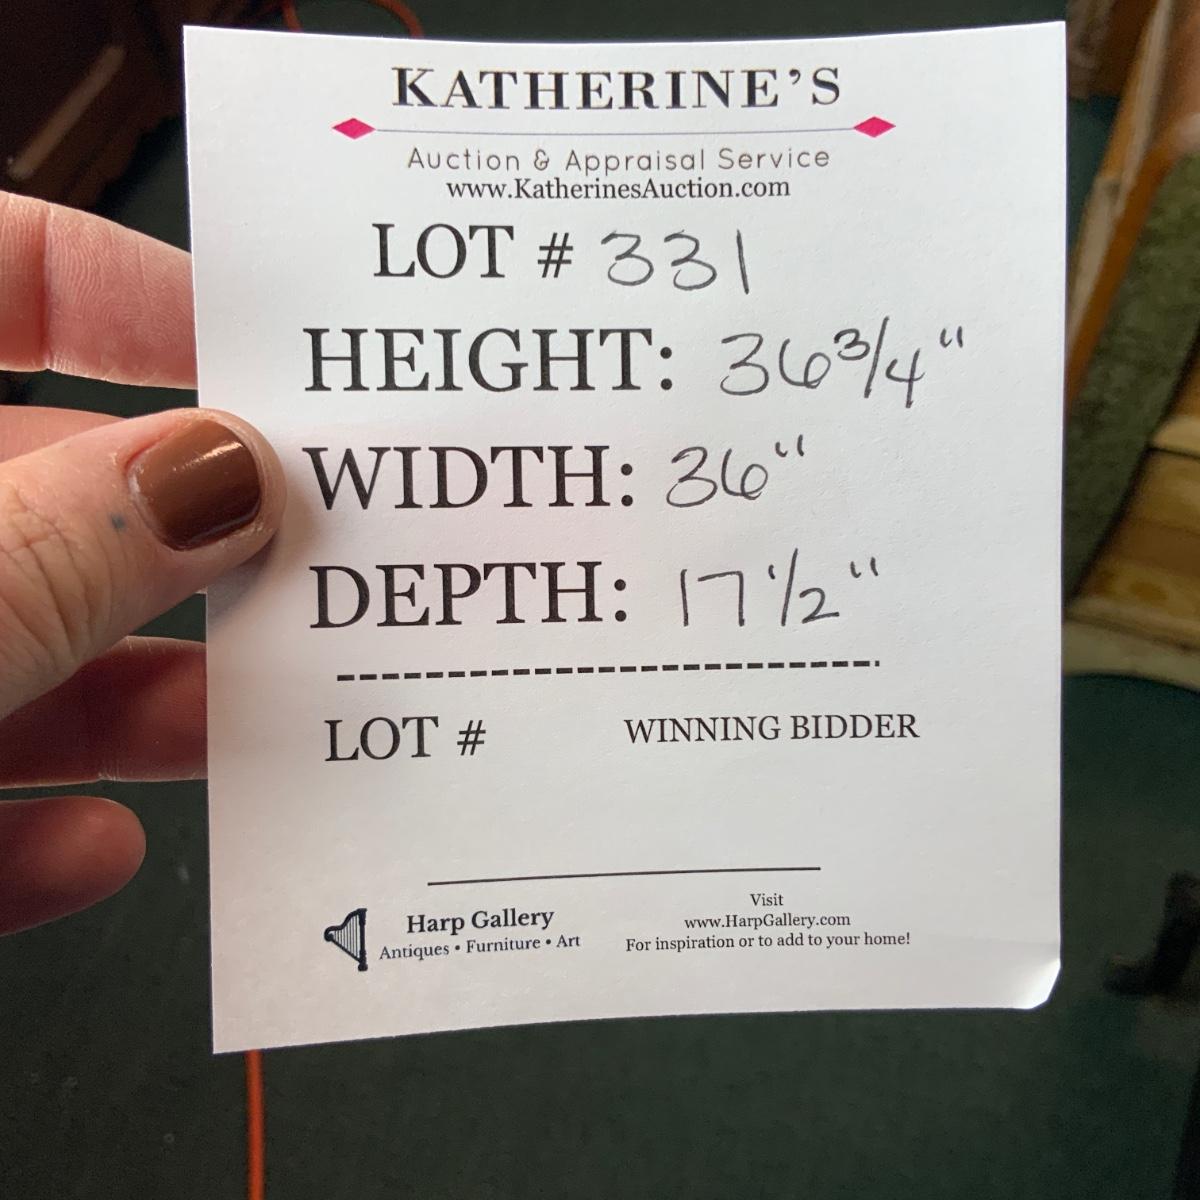 KATHERINE'S
Auction & Appraisal Service
www.KatherinesAuction.com
LOT # 331
HEIGHT: 36 3/4"
WIDTH: 36"
DEPTH: 17 1/2"
LOT # WINNING BIDDER
Harp Gallery
Antiques • Furniture • Art
Visit
www.HarpGallery.com
For inspiration or to add to your home!